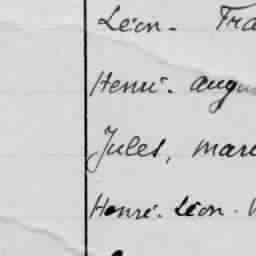 Léon - Fra
Henri - augu
Jules, mari
Henri - Léon -